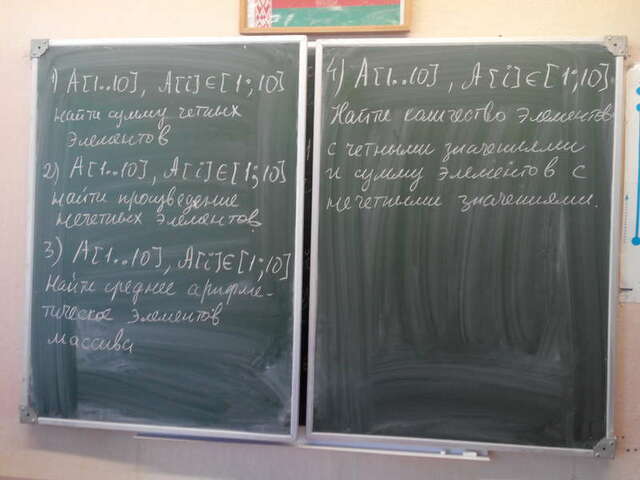 1) A[1..10], A[i]∈[1;10]
найти сумму четных
элементов
2) A[1..10], A[i]∈[1;10]
найти произведение
нечетных элементов
3) A[1..10], A[i]∈[1;10]
Найти среднее арифме-
тическое элементов
массива
4) A[1..10], A[i]∈[1;10]
Найти количество элементов
с четными значениями
и сумму элементов с
нечетными значениями.